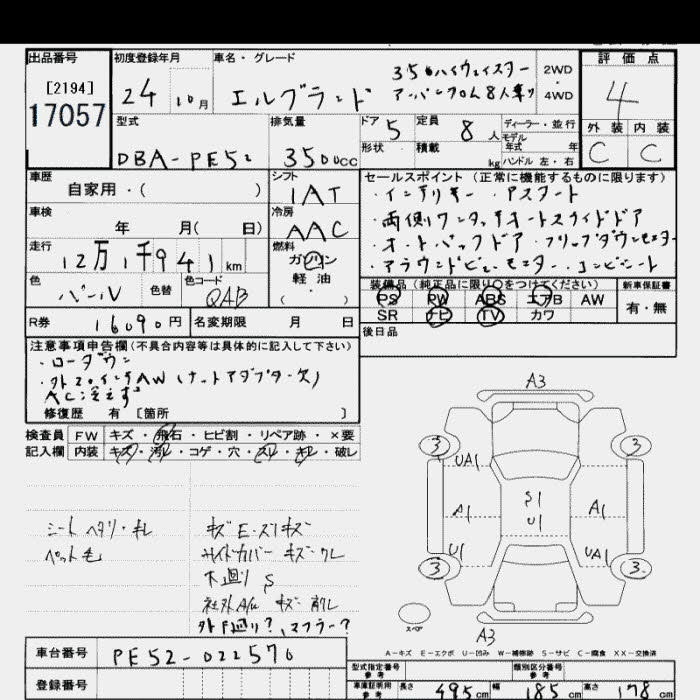 出品番号 初度登録年月 車名・グレード 評価点
[2194] 17057
24 10月 エルグランド 350ハイウェイスター 2WD
アーバンクロム8人乗り 4WD
4
型式 排気量 ドア 5 定員 8人 ディーラー・並行
モデル年式 年
外装 内装
DBA-PE52 3500cc 形状 積載 kg ハンドル 左・右
C C
車歴 シフト セールスポイント (正常に機能するものに限ります)
自家用・( ) IAT
・インテリキー ・アスタート
車検 冷房 ・両側ワンタッチオートスライドドア
年 月( 日) AAC
・オートバックドア ・フリップダウンモニター
走行 燃料 ・アラウンドビューモニター ・コンビシート
12万1千941km ガソリン・軽油・( )
色 パール 色替 色コード QAB
装備品 (純正品に限り○をつけてください) 新車保証書
PS PW ABS エアB AW
SR ナビ TV カワ
有・無
R券 16090円 名変期限 月 日
後日品
注意事項申告欄(不具合内容等は具体的に記入して下さい)
・ローダウン
・外20インチAW(ナットアダプター欠)
AC冷えず
修復歴 有 [箇所 ]
検査員記入欄 FW キズ・飛石・ヒビ割・リペア跡・×要
内装 キズ・汚レ・コゲ・穴・スレ・キレ・破レ
シート ヘタリ・キレ
ペット毛
キズ E・スリキズ
サイドカバー キズ・ワレ
下廻り S
社外A/W キズ・削レ
外下廻り?、マフラー?
A3
3 3
UA1
A1 S1 U1 A1
U1 UA1
3 3
スペア
A3
A-キズ E-エクボ U-凹み W-補修跡 S-サビ C-腐食 XX-交換済
車台番号 PE52-022570
登録番号
型式指定番号 参考 類別区分番号 参考
車庫証明用 参考 長さ 495cm 幅 185cm 高さ 178cm